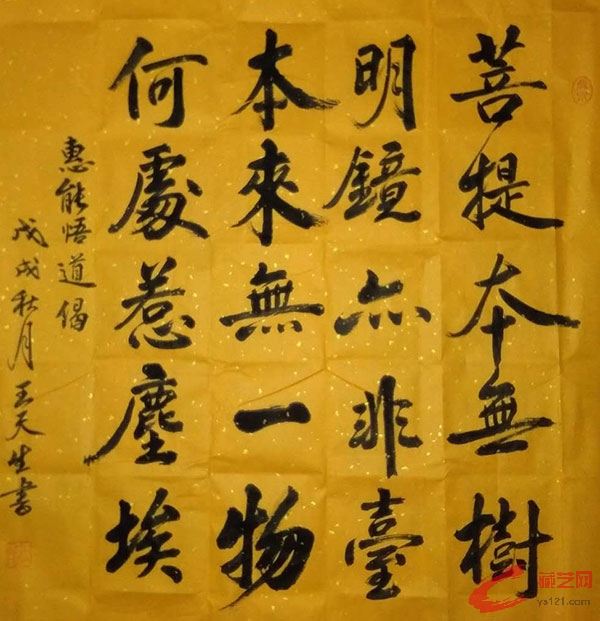 菩提本無樹
明鏡亦非臺
本來無一物
何處惹塵埃
惠能悟道偈
戊戌秋月王天生書
藏艺网
ys121.com